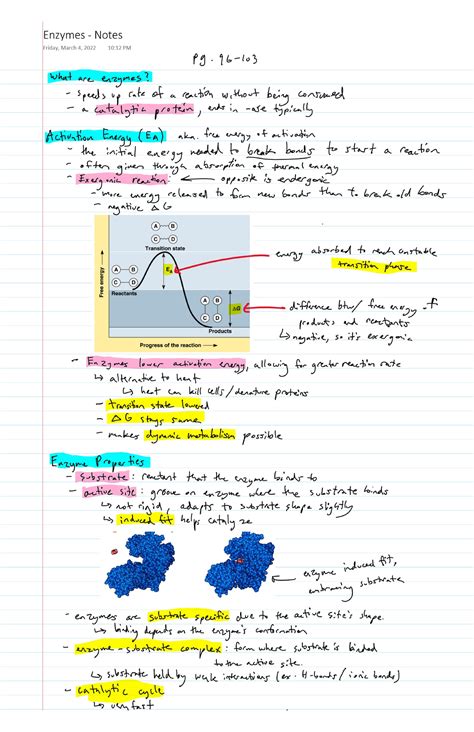 Enzymes - Notes
Friday, March 4, 2022 10:32 PM
Pg. 96-103
What are enzymes?
- speeds up rate of a reaction without being consumed
- a catalytic protein, ends in -ase typically
Activation Energy (EA) aka. free energy of activation
- the initial energy needed to break bonds to start a reaction
- often given through absorption of thermal energy
- Exergonic reaction: ← opposite is endergonic
- more energy released to form new bonds than to break old bonds
- negative ΔG
A B
C D
Transition state
A B
C D
Reactants
EA
A B
C D
ΔG
Products
Free energy
Progress of the reaction
energy absorbed to reach unstable
transition phase
difference btw/ free energy of
products and reactants
↳ negative, so it's exergonic
- Enzymes lower activation energy, allowing for greater reaction rate
↳ alternative to heat
↳ heat can kill cells/denature proteins
- transition state lowered
- ΔG stays same
- makes dynamic metabolism possible
Enzyme Properties
- substrate: reactant that the enzyme binds to
- active site: groove on enzyme where the substrate binds
↳ not rigid, adapts to substrate shape slightly
↳ induced fit helps catalyze
enzyme induced fit,
embracing substrate
- enzymes are substrate specific due to the active site's shape
↳ binding depends on the enzyme's conformation
- enzyme-substrate complex: form where substrate is binded
to the active site.
↳ substrate held by weak interactions (ex. H-bonds/ionic bonds)
- catalytic cycle
↳ very fast